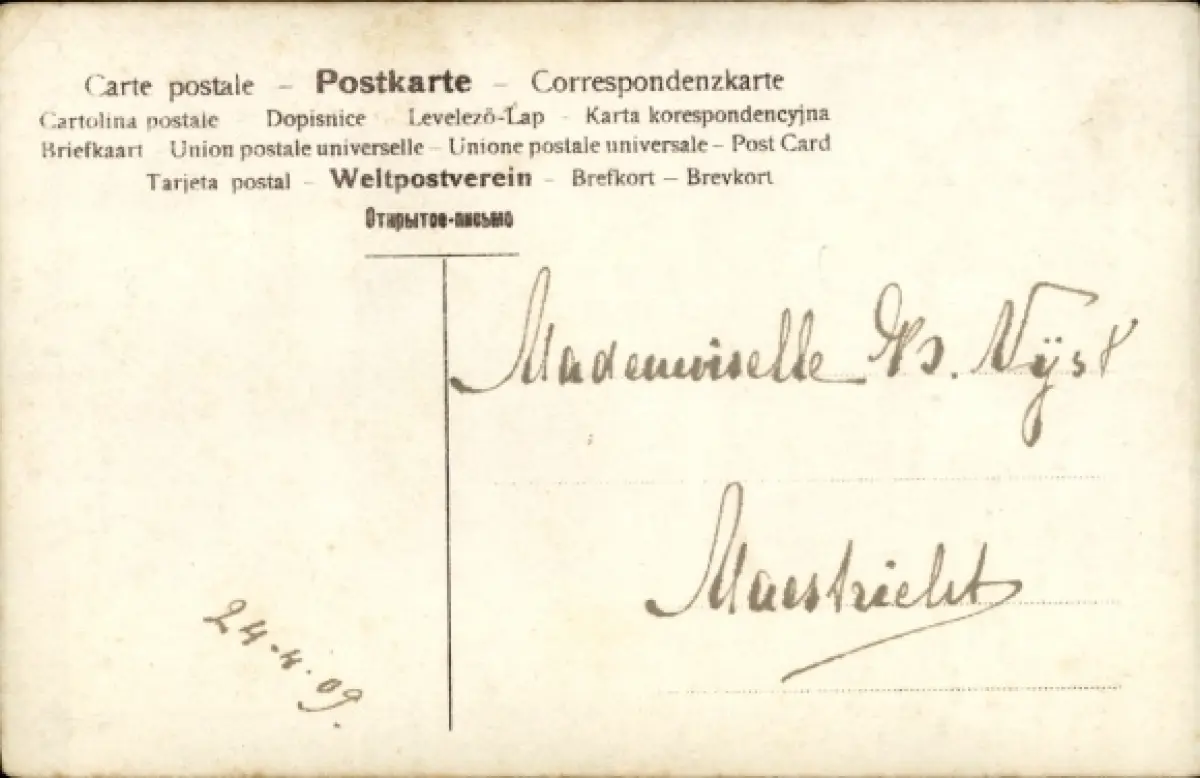 Carte postale – Postkarte – Correspondenzkarte
Cartolina postale Dopisnice Levelező-Lap – Karta korespondencyjna
Briefkaart Union postale universelle – Unione postale universale – Post Card
Tarjeta postal – Weltpostverein – Brefkort – Brevkort
Открытое-письмо
Mademoiselle . Nÿst
Maestricht
24.4.09.